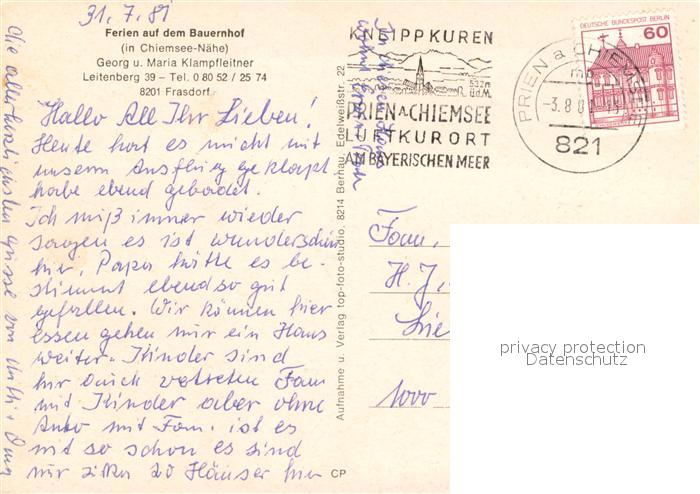 31.7.81
Ferien auf dem Bauernhof
(in Chiemsee-Nähe)
Georg u. Maria Klampfleitner
Leitenberg 39 – Tel. 0 80 52 / 25 74
8201 Frasdorf
Hallo All Ihr Lieben!
Heute hat es nicht mit
unserm Ausflug geklapt
habe ebend gebadet.
Ich miß immer wieder
sagen es ist wunderschön
hier, Papa hätte es be-
stimmt ebend so gut
gefallen. Wir können hier
essen gehen nur ein Haus
weiter. Kinder sind
hir auch
mit Kinder aber ohne
Auto mit Fam. ist es
nit so schon es sind
nur 20 Häuser hier
die allerherzlichsten Grüsse von
In diesem Haus
Aufnahme u. Verlag top-foto-studio, 8214 Bernau, Edelweißstr. 22
CP
KNEIPPKUREN
532m
ü.d.M.
PRIEN A. CHIEMSEE
LUFTKURORT
AM BAYERISCHEN MEER
PRIEN a CHIEMSEE
-3.8.8
821
DEUTSCHE BUNDESPOST BERLIN
60
Fam.
H. J.
1000
privacy protection
Datenschutz